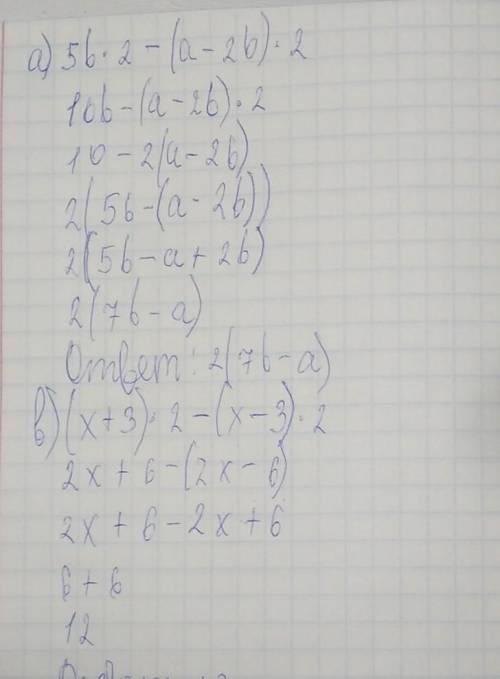 а) 5b · 2 - (a - 2b) · 2
10b - (a - 2b) · 2
10 - 2(a - 2b)
2(5b - (a - 2b))
2(5b - a + 2b)
2(7b - a)
Ответ: 2(7b - a)
в) (x + 3) · 2 - (x - 3) · 2
2x + 6 - (2x - 6)
2x + 6 - 2x + 6
6 + 6
12